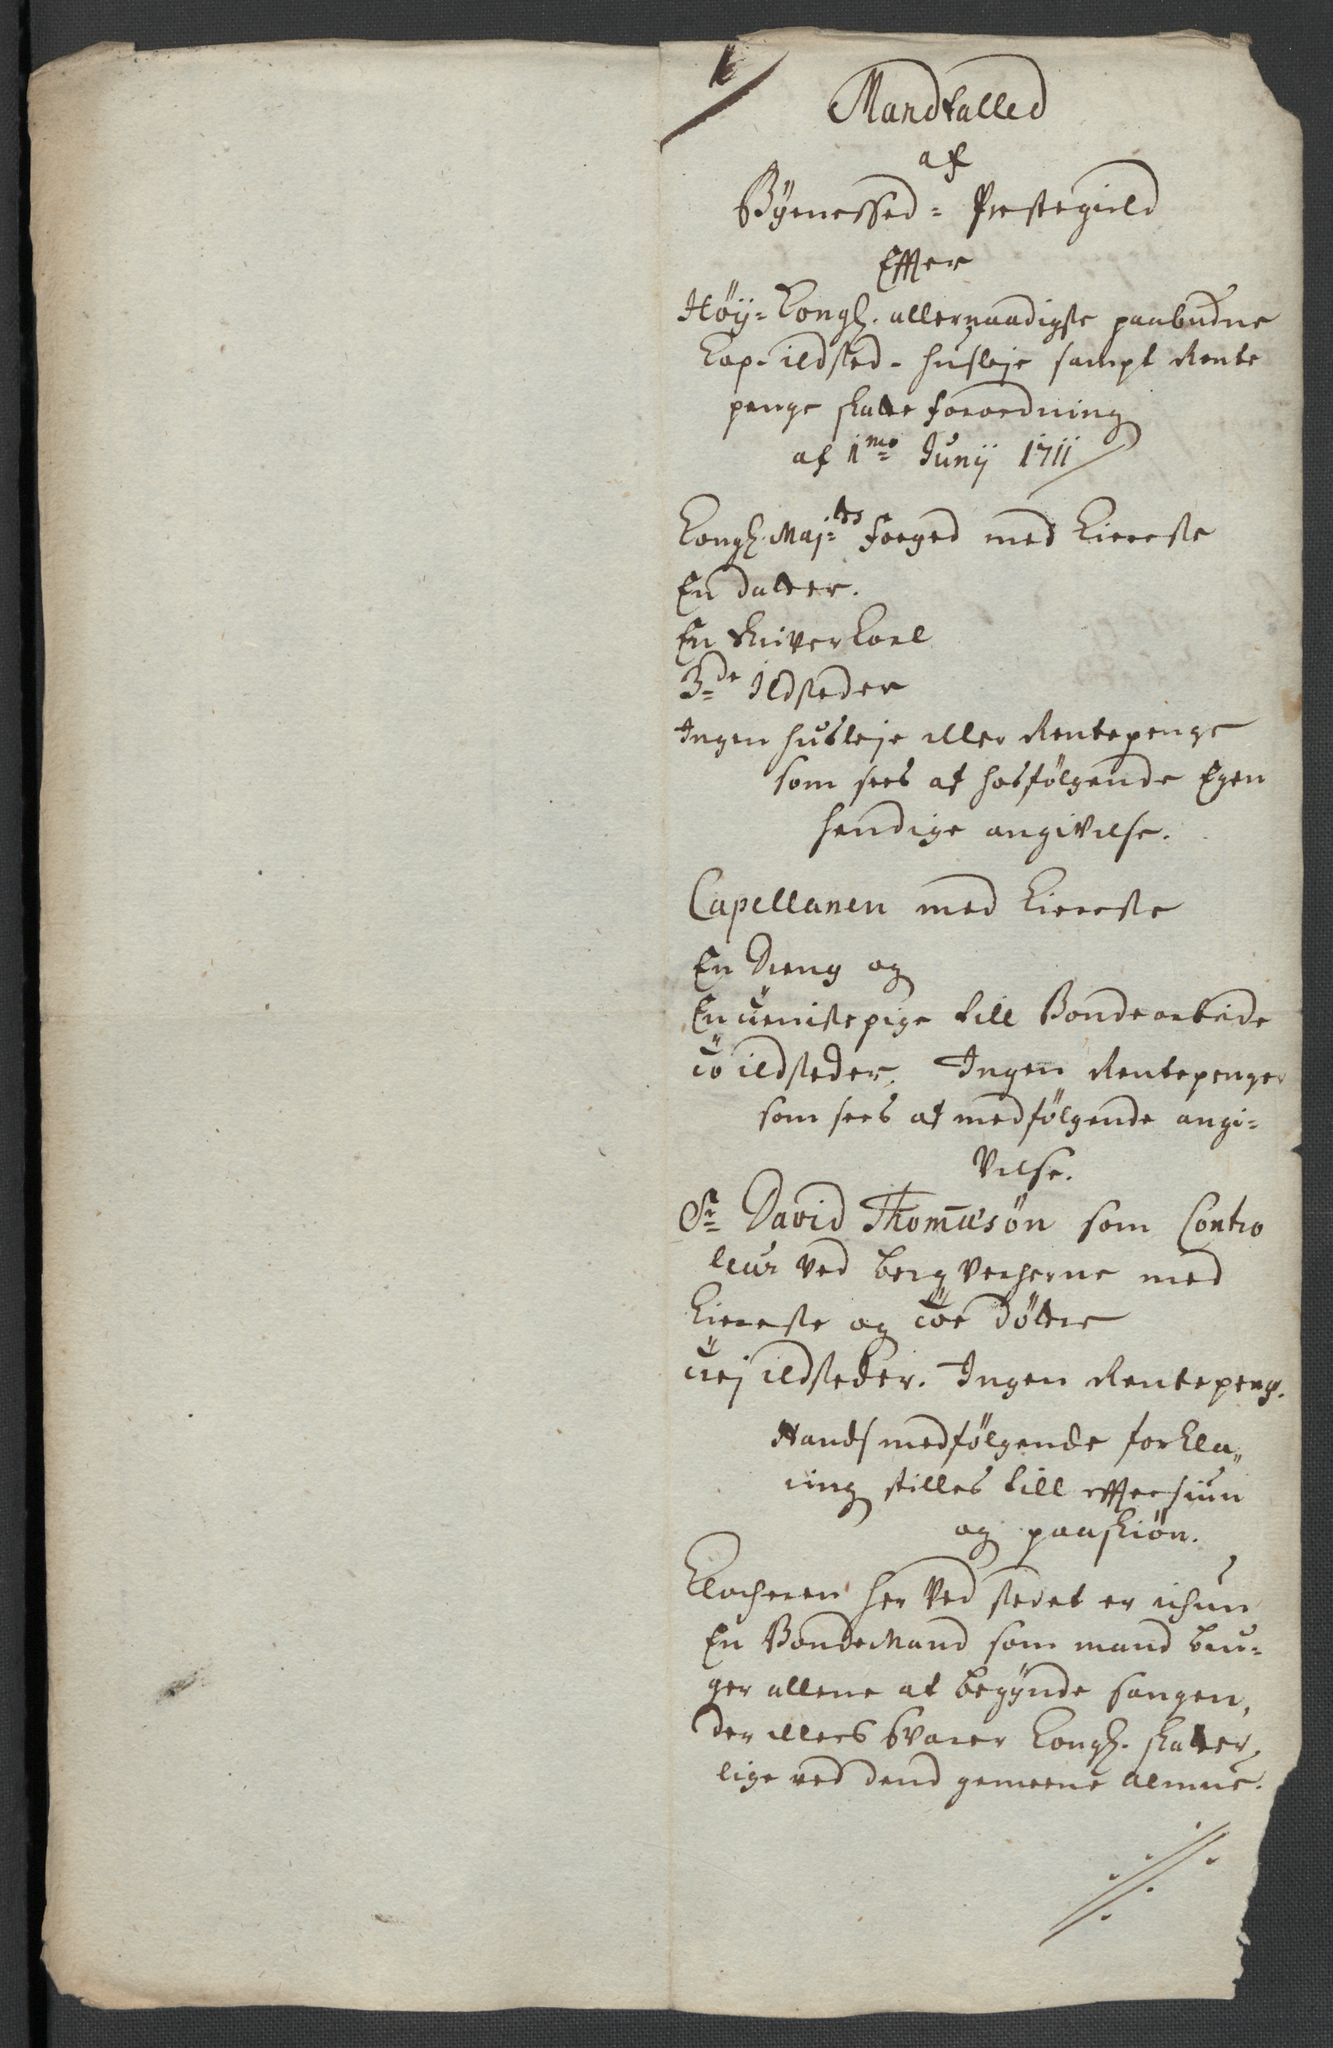 1
Mandtalled
af
Bÿenessed = Prestegield
Effter
Höÿ= Kongl. allernaadigste paabudne
Kop- ildsted- husleje sampt Rente
penge skatte forordning
af 1mo Junÿ 1711
Kongl. Maj:ts foeged med Kiereste
En datter.
En Skriver Karl
3de Ildsteder
Ingen husleje eller Rentepenge
som sees af hosfölgende Egen
hendige angivelse.
Capellanen med Kiereste
En Dreng og
En tienistepige till Bondearbeide
to ildsteder. Ingen Rentepenger
som sees af medfölgende angi=
velse.
Sr David Thomæsön som Contro
leur ved bergverkerne med
Kiereste og toe dötre
trej ildsteder. Ingen Rentepeng.
Hands medfölgende forkla„
ring stilles till efftersiun
og paaskiön.
Klockeren her ved stedet er ichun
En BondeMand som mand bru=
ger allene at begÿnde sangen,
der ellers svarer Kongl. skatter,
lige ved dend gemeene almue.